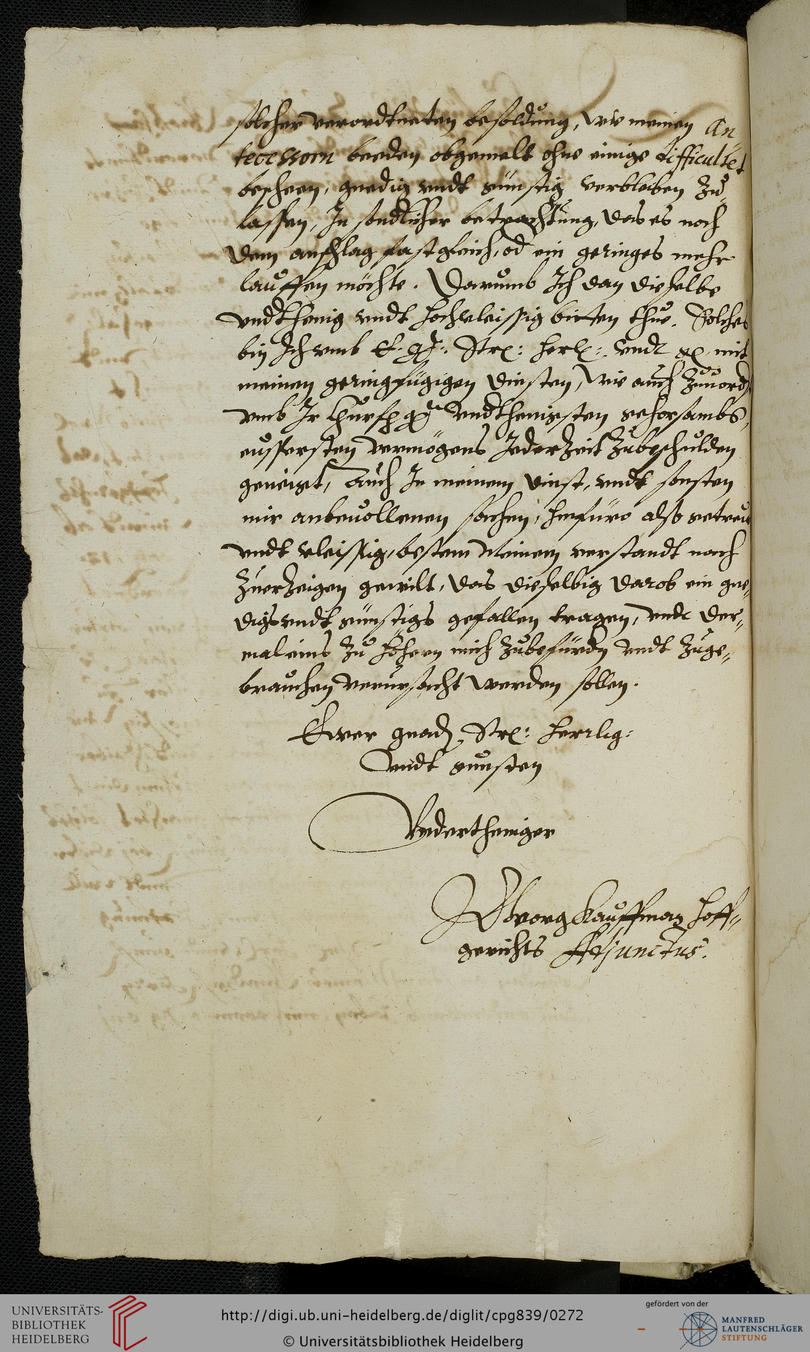 solcher verordtneten besoldung, wie meinen An
tecessorn beeden obgemelt ohne einige difficultet
bescheen, gnedig vndt günstig verbleiben Zu
lassen, In sondlicher betrachtung, das es noch
dem anschlag fast gleich, od ein geringes mehr
lauffen möchte. Darumb Ich dan dieselbe
vndthenig vndt hochvleissig bitten thue. Solches
bin Ich vmb E. G. Str: Herl: vndt mit
meinen geringfügigen diensten, wie auch Zuuord
vmb Ir Churf g vndthenigsten gehorsambs,
eussersten vermögens Jederzeit Zubeschulden
geneigt, Auch In meinem dinst, vndt sonsten
mir anbeuollenen sachen, hinfüro also getreu
vndt vleissig, bestem meinem verstandt nach
Zuerzeigen gewilt, das dieselbig darob ein gne-
digs vndt günstigs gefallen tragen, vndt der-
maleins Zu höhern mich Zubefürdn vndt Zuge-
brauchen verursacht werden sollen.
Ewer gnad, Str: Herrlig:
vndt gunsten
Vndertheniger
Georg Kauffman Hoff-
gerichts Adjunctus.
UNIVERSITÄTS-
BIBLIOTHEK
HEIDELBERG
http://digi.ub.uni-heidelberg.de/diglit/cpg839/0272
© Universitätsbibliothek Heidelberg
gefördert von der
MANFRED
LAUTENSCHLÄGER
STIFTUNG